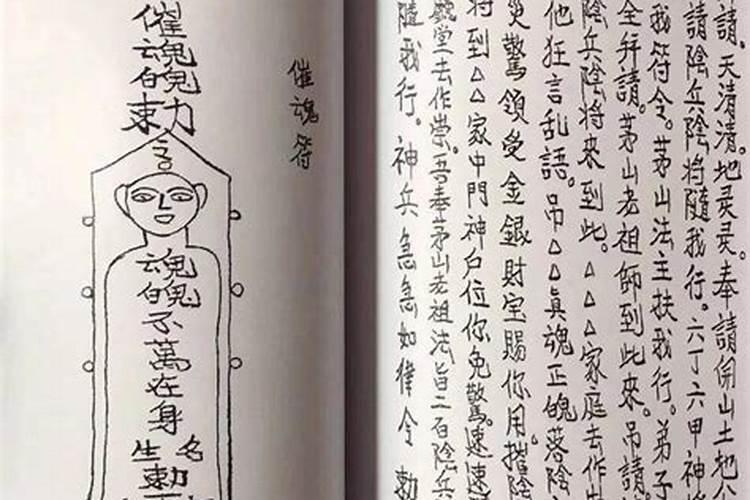 請。天清清。地灵灵。奉請開山土地
請陰兵陰將隨我行。六丁六甲神
我符令。茅山法主扶我行。弟子
全幷請。茅山老祖師到此來。吊請
陰兵陰將來到此。△△△家庭去作
他狂言乱語。吊△△真魂正魄落陰
災驚領受金銀財宝賜你用。摧陰
将到△△家中門神户位你免驚。速速
堂去作祟。吾奉茅山老祖法旨二百陰兵
隨我行。神兵急急如律令 勅
催魂符
催魂魄勅
魂魄不萬在身
名
生
勅